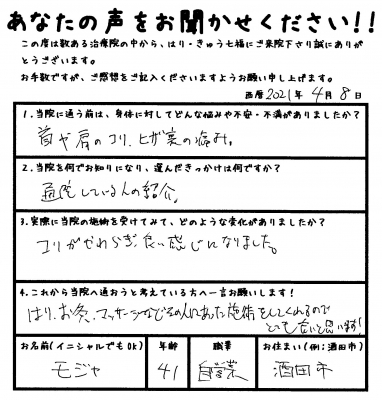 あなたの声をお聞かせください!!
この度は数ある治療院の中から、はり・きゅう七福にご来院下さり誠にありが
とうございます。
お手数ですが、ご感想をご記入くださいますようお願い申し上げます。
西暦 2021年 4月 8日
1.当院に通う前は、身体に対してどんな悩みや不安・不満がありましたか?
首や肩のコリ、ヒザ裏の痛み。
2.当院を何でお知りになり、選んだきっかけは何ですか?
通院している人の紹介。
3.実際に当院の施術を受けてみて、どのような変化がありましたか?
コリがやわらぎ、良い感じになりました。
4.これから当院へ通おうと考えている方へ一言お願いします!
はり、お灸、マッサージなどその人にあった施術をしてくれるので
とても良いと思います!
お名前(イニシャルでもOK) 年齢 職業 お住まい(例:酒田市)
モジャ 41 自営業 酒田市